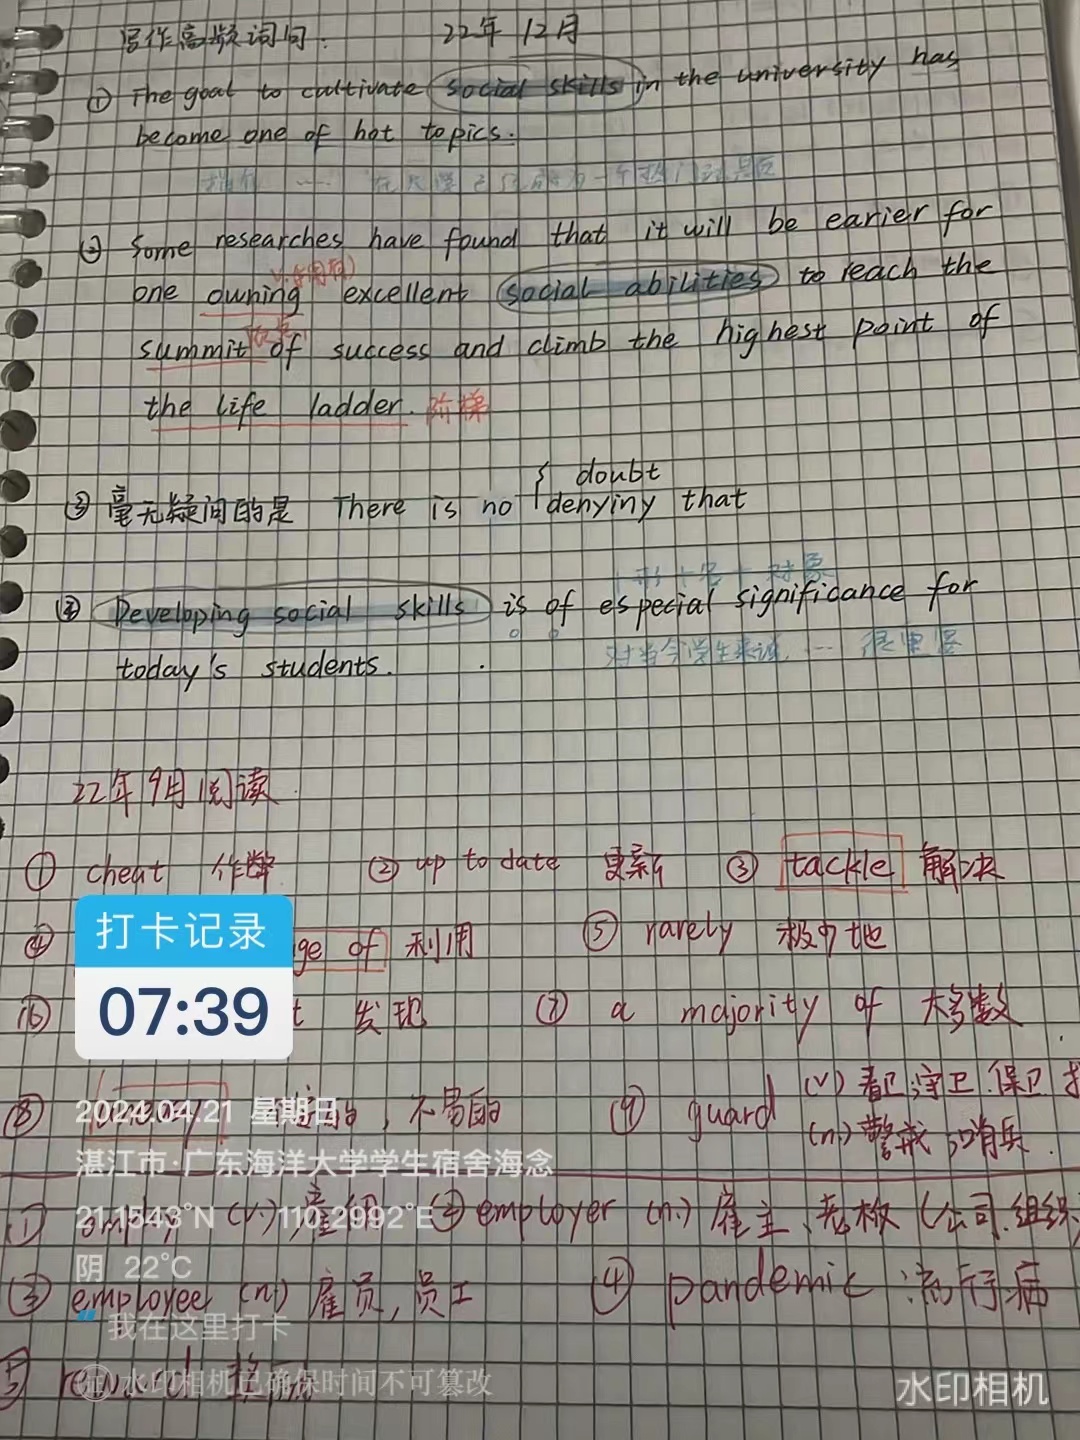 写作高频词句. 22年 12月
① The goal to cultivate social skills in the university has
become one of hot topics.
② Some researches have found that it will be earier for
one owning excellent social abilities to reach the
summit of success and climb the highest point of
the life ladder. 阶梯
doubt
③ 毫无疑问的是 There is no { denyiny that
+形+名+对象
④ Developing social skills is of especial significance for
对当今学生来说, … 很重要
today's students.
22年9月阅读
① cheat 作弊 ② up to date 更新 ③ tackle 解决
④ ge of 利用 ⑤ rarely 极少地
打卡记录
07:39
⑥ t 发现 ⑦ a majority of 大多数
⑧ 的, 不易的 ⑨ guard (v) 看卫,守卫.保卫
(n.) 警戒 哨兵.
2024.04.21 星期日
湛江市·广东海洋大学学生宿舍海念
① (v.) 雇 ② employer (n.) 雇主、老板 (公司.组织
21.1543°N 110.2992°E
阴 22°C
③ employee (n.) 雇员, 员工 ④ pandemic 流行病
我在这里打卡
⑤
水印相机已确保时间不可篡改
水印相机